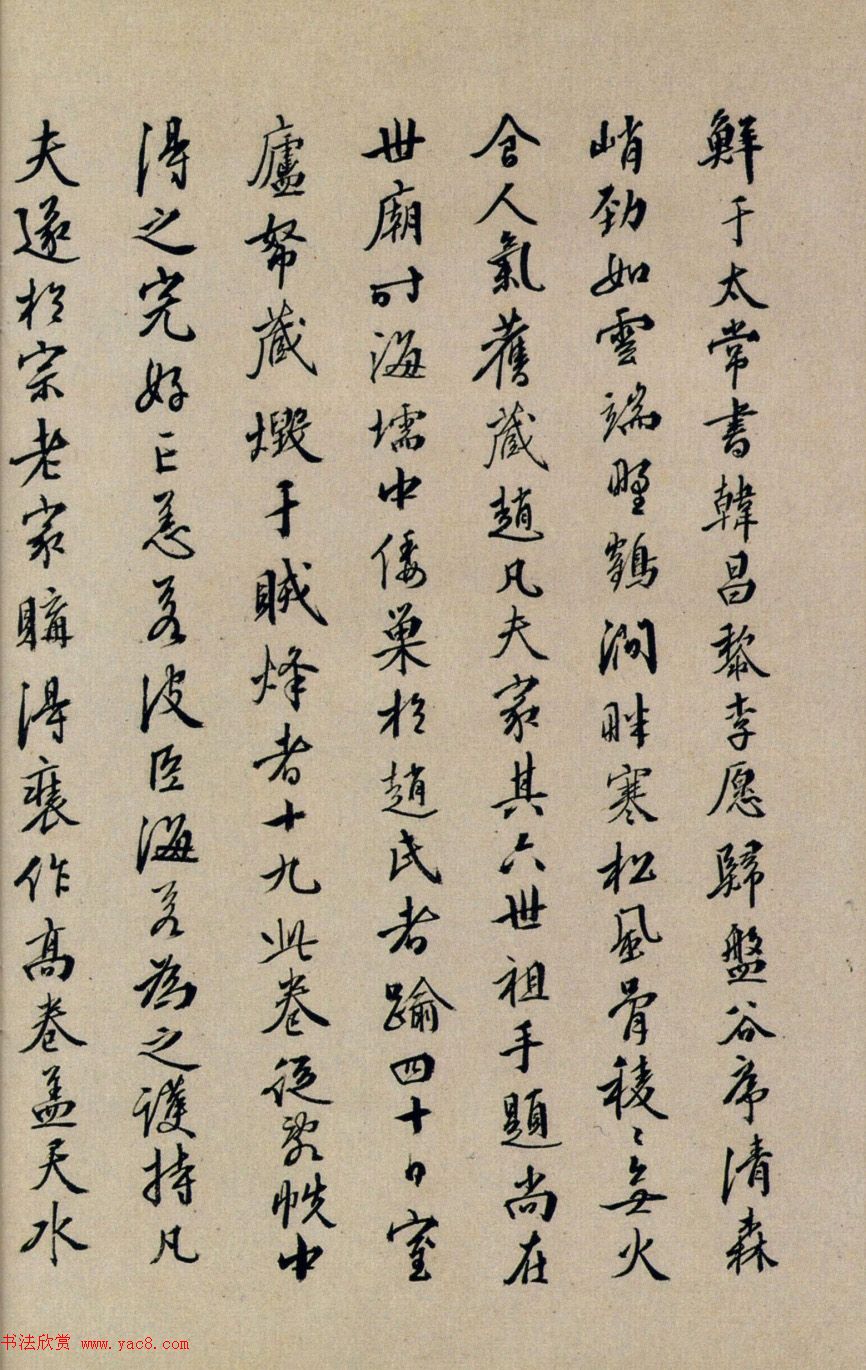 鮮于太常書韓昌黎李愿歸盤谷序清森
峭勁如雲端野鶴澗畔寒松風骨稜〻無火
食人氣舊藏趙凡夫家其六世祖手題尚在
世廟時海壖中倭巢於趙氏者踰四十日室
廬帑藏燬于賊烽者十九此卷從敗帙中
得之完好亡恙若波臣海若為之護持凡
夫遂於宗老家購得襄作高卷蓋天水
书法欣赏 www.yac8.com